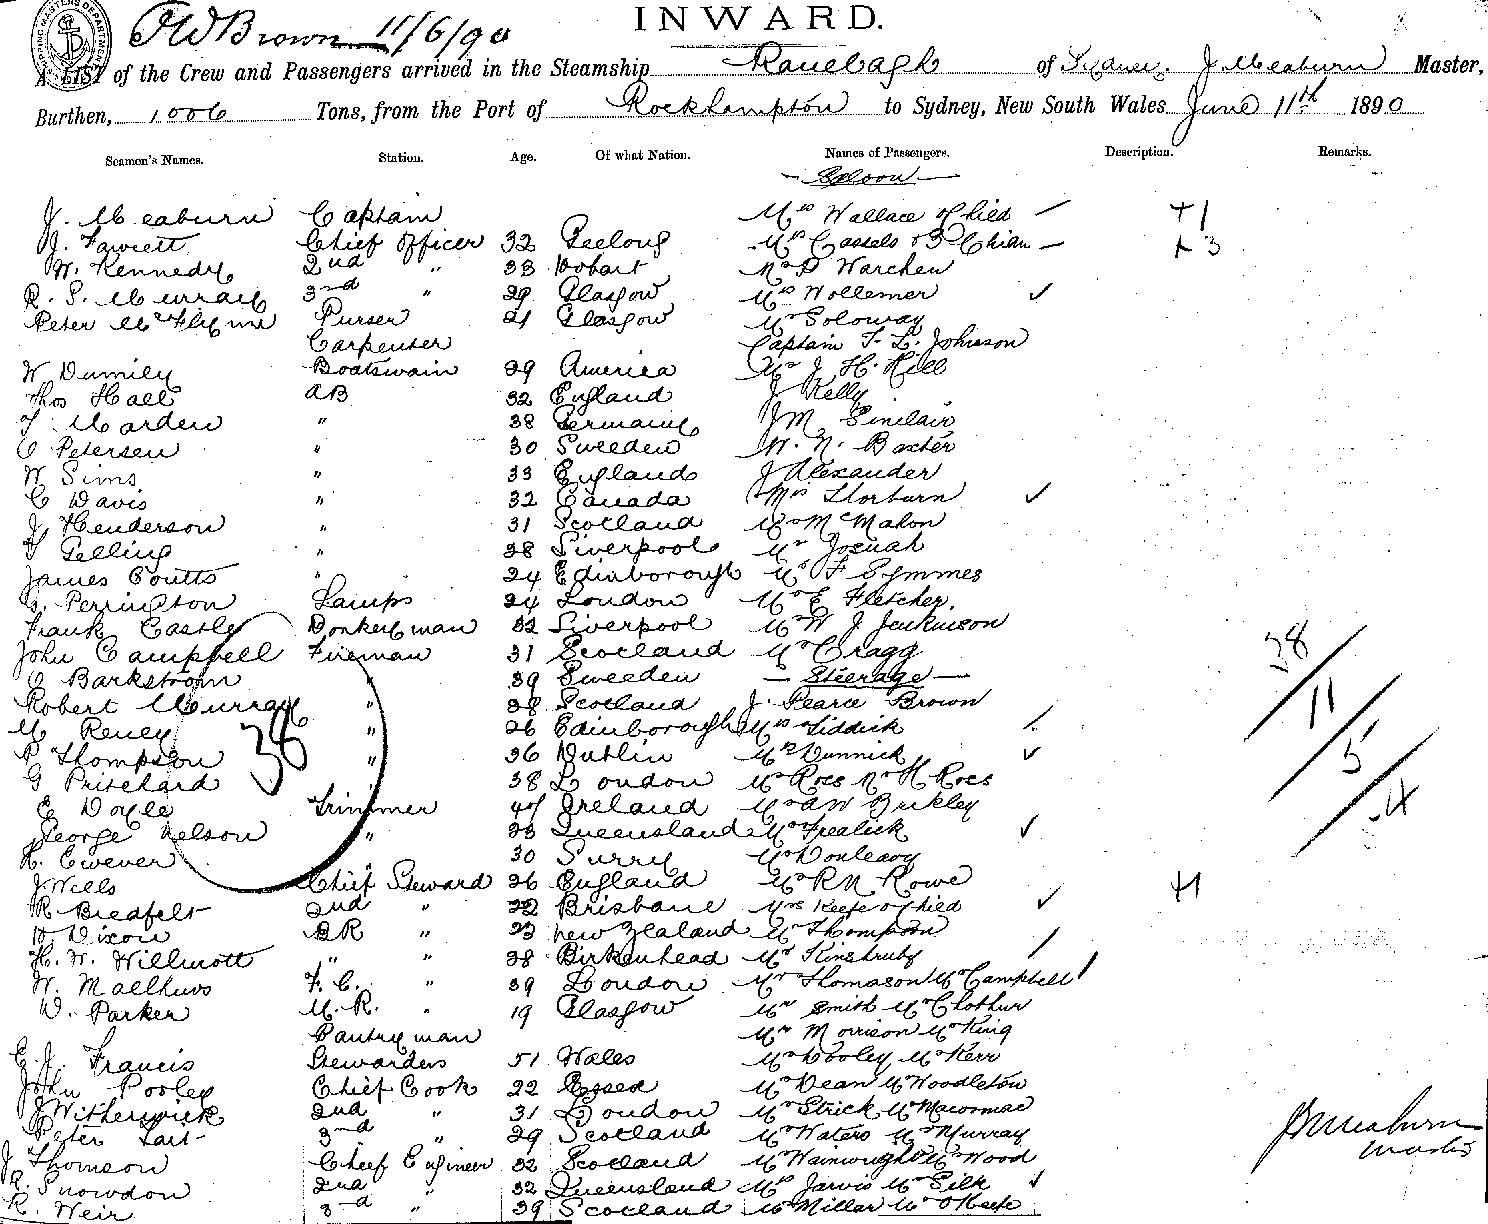 INWARD.
J W Brown 11/6/90
A LIST of the Crew and Passengers arrived in the Steamship Ranelagh of J. Meaburn Master,
Burthen, 1006 Tons, from the Port of Rockhampton to Sydney, New South Wales June 11th 1890
Seamen's Names. Station. Age. Of what Nation. Names of Passengers. Description. Remarks.
Saloon
J. Meaburn Captain Mrs Wallace & Child +1
J. Fawcett Chief Officer 32 Geelong Mrs Cassels & 3 Chian +3
W. Kennedy 2nd " 33 Hobart Warchen
R. S. Murray 3rd " 29 Glasgow Mrs Wollemer
Peter Purser 21 Glasgow Mr Soloway
Carpenter Captain F. L. Johnson
W Dumily Boatswain 29 America Mr J. H. Hill
Thos Hall AB 32 England J Kelly
Marden " 38 Germany J M Sinclair
C Petersen " 30 Sweeden W. N. Baxter
W Sims " 33 England J Alexander
C Davis " 32 Canada Mrs Thorburn
J Henderson " 31 Scotland Mr McMahon
Gelling " 38 Liverpool Mr Josuah
James Coutts " 24 Edinborough Mr F Symmes
Perrington Lamps 24 London Mr E Fletcher.
Frank Castle Donkeyman 32 Liverpool Mr W J Jenkinson
John Campbell Fireman 31 Scotland Mr Cragg
C Barkstrom " 39 Sweeden Steerage
Robert Murray " 38 Scotland J. Pearce Brown
M Reney " 26 Edinborough Mrs Liddick
P Thompson " 36 Dublin Mr Dunnick
G Pritchard " 38 London Mr Roes Mr H Roes
E Doyle Trimmer Ireland Mr A W Birkley
George Nelson " 23 Queensland Mr Frealick
H. Ewever " 30 Surry Mr Donleavy
J Wills Chief Steward 26 England Mr R N Rowe +1
R Bredfelt 2nd " 22 Brisbane Mrs Keefe & Child
Dixon BR " 23 New Zealand Mr Thompson
H. W. Willmott " " 28 Birkenhead Mr Kinstruby
W. Maelhuvs F. C. " 39 London Mr Thomason Mr Campbell
W. Parker M. R. " 19 Glasgow Mr Smith Mr Clothur
Pantryman Mr Morrison Mr King
E. J. Francis Stewardess 51 Wales Mr Dooley Mr Kerr
John Pooley Chief Cook 22 Essed Mr Dean Mr Woodleton
J Witherwick 2nd " 31 London Mr Strick Mr Macormac
Peter Lait 3rd " 29 Scotland Mr Waters Mr Murray
J Thomson Chief Engineer 32 Scotland Mr Wainwright Mr Wood
R. Snowdon 2nd " 32 Queensland Mrs Jarvis Mr Silk
R. Weir 3rd " 39 Scotland Mr Millar Mr O'Keefe
38
38 / 11 / 5 / 4
J Meaburn
Master